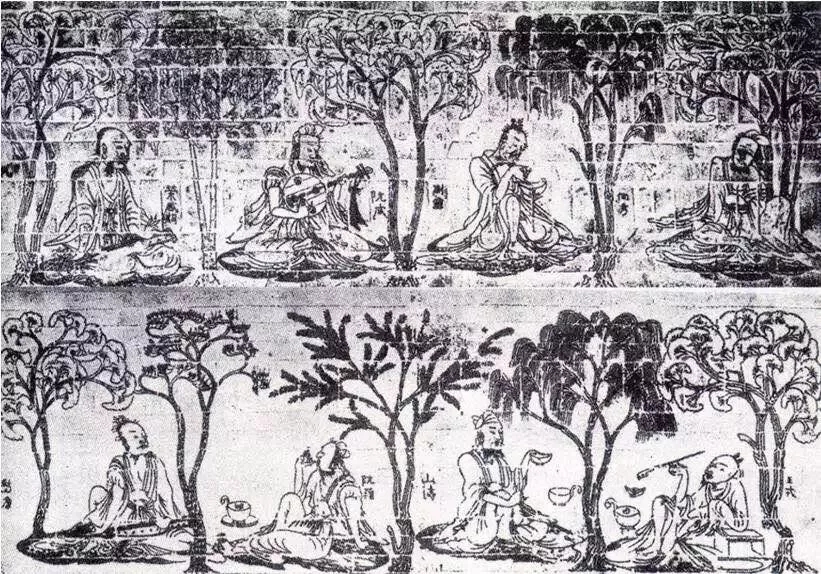 榮啟期
阮咸
劉靈
向秀
嵇康
阮籍
山濤
王戎